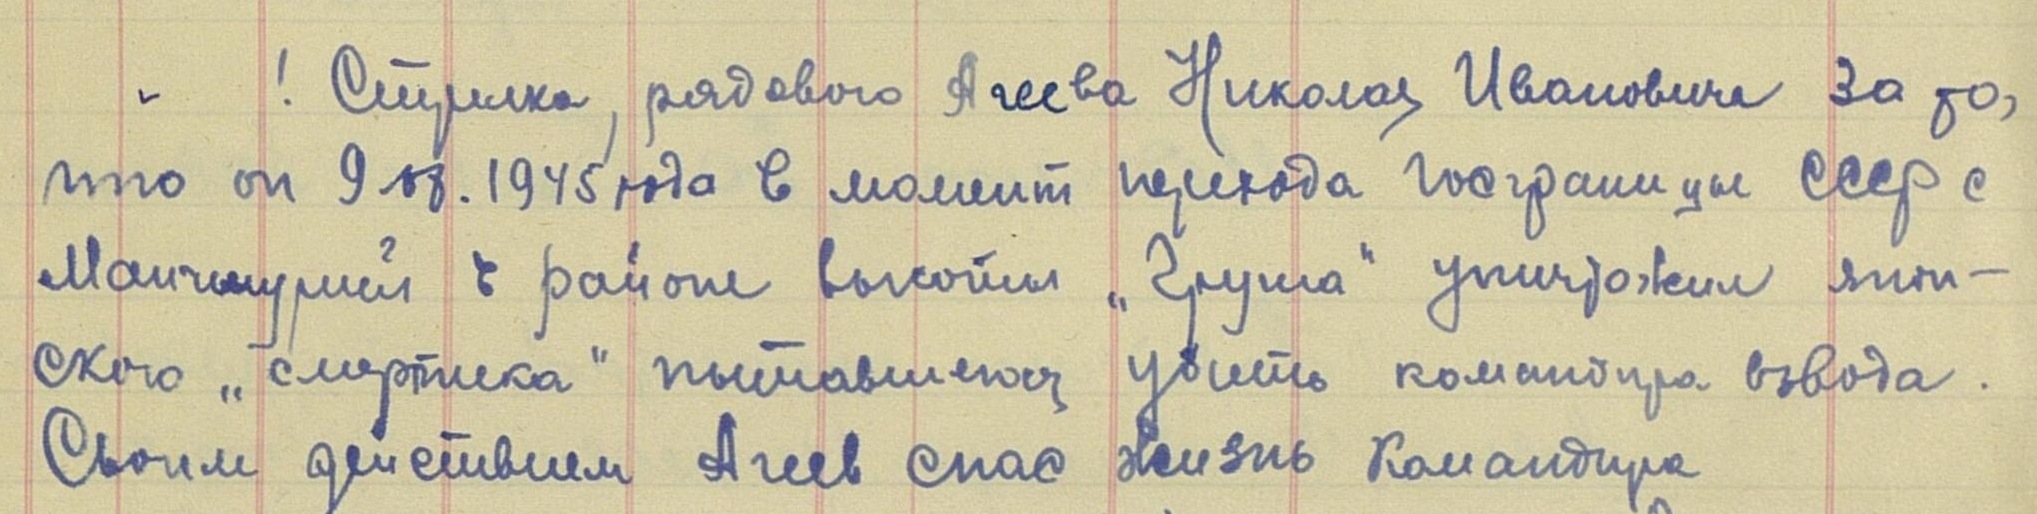 ! Стрелка, рядового Агеева Николая Ивановича за то,
что он 9.08.1945 года в момент перехода госграницы СССР с
Манчжурией в районе высоты „Груша" уничтожил япон-
ского „смертника" пытавшегося убить командира взвода.
Своим действием Агеев спас жизнь командира